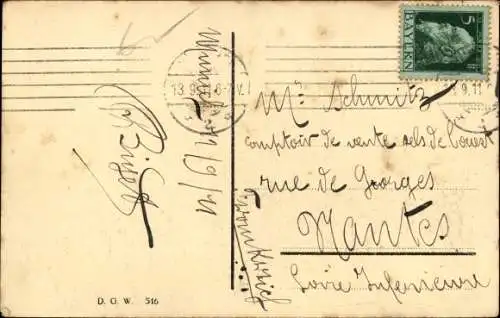 5
BAYERN
13.9.11 6-7 V.
9.11
München 12/9/11
Mr Schmitz
comptoir de vente sels de l'ouest
rue de Georges
Nantes
Loire Inferieure
Frankreich
D. G. W. 516